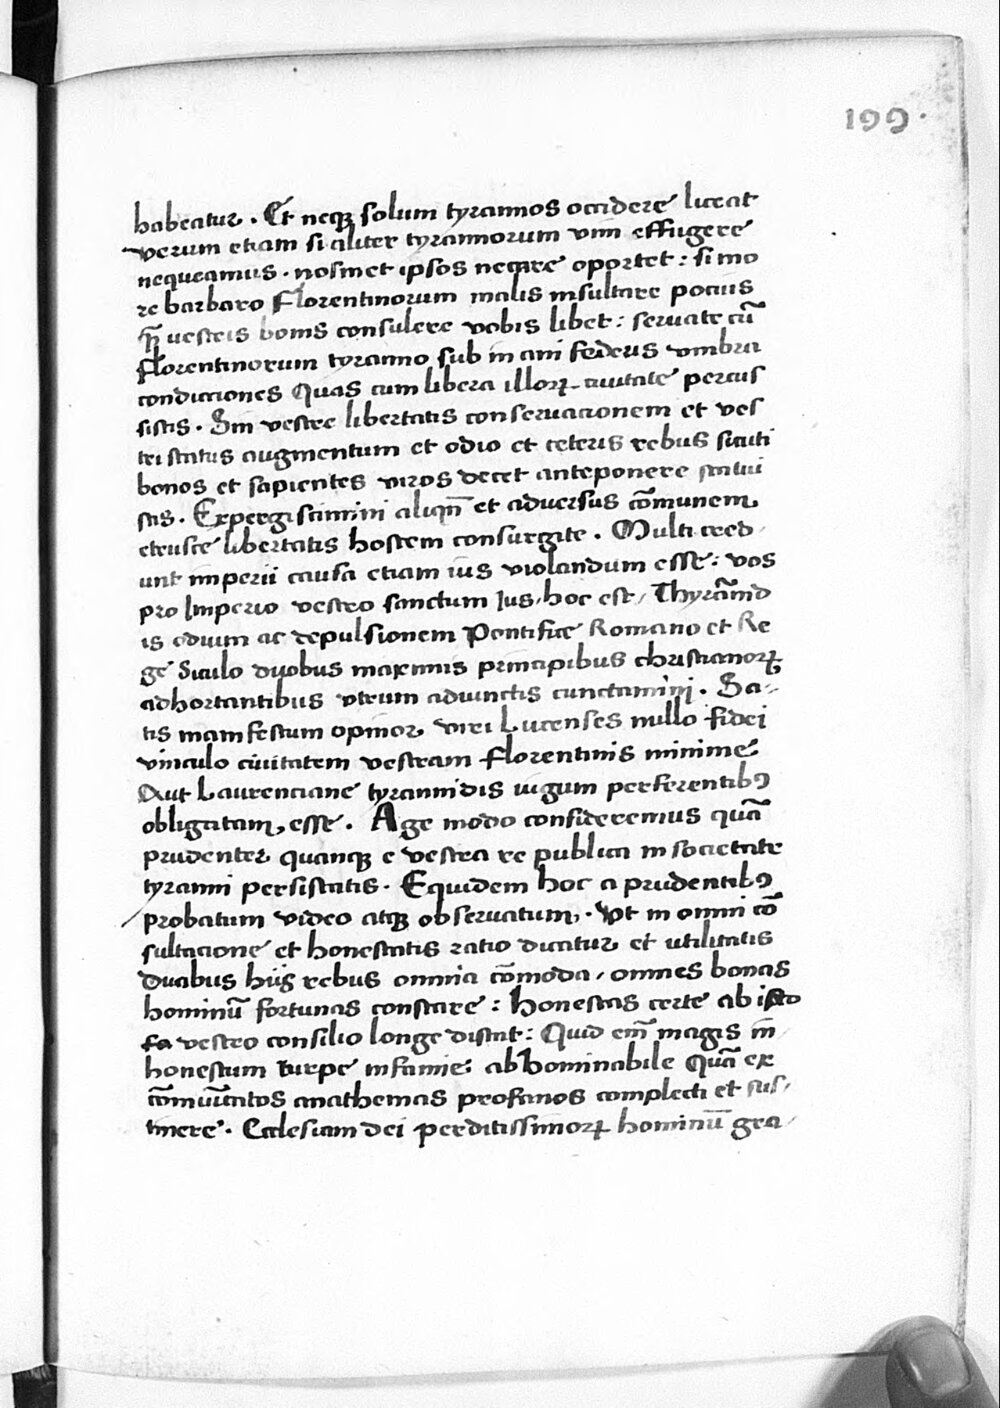 199.
habeatur. Et neq̃ solum tyrannos occidere liceat
verum etiam si aliter tyrannorum vim effugere
nequeamus. nosmet ipsos necare oportet: si mo
re barbaro Florentinorum malis insultare pocius
q̃ uestris bonis consulere vobis libet: seruate cũ
florentinorum tyranno sub inani federis vmbra
condiciones Quas cum libera illoꝝ ciuitate percus
sistis. Sin vestre libertatis conseruacionem et ves
tri status augmentum et odio et ceteris rebus sicuti
bonos et sapientes viros decet anteponere statui
stis. Expergiscimini aliqñ et aduersus cõmunem
etrusce libertatis hostem consurgite. Multi cred
unt imperii causa etiam ius violandum esse: vos
pro Imperio vestro sanctum Ius, hoc est, Thyrãnid
is odium ac depulsionem Pontifice Romano et Re
ge Siculo duobus maximis principibus christianoꝝ
adhortantibus vtrum adiunctis cunctamini. Sa-
tis manifestum opinor viri Lucenses nullo fidei
vinculo ciuitatem vestram florentinis minime
Aut Laurenciane tyrannidis iugum perferentibꝰ
obligatam, esse. Age modo consideremus quã
prudenter quanq̃ e vestra re publica in societate
tyranni persistatis. Equidem hoc a prudentibꝰ
probatum video atq̃ obseruatum,. Vt in omni cõ
sultacione et honestatis ratio ducatur et utilitatis
duabus hiis rebus omnia cõmoda, omnes bonas
hominũ fortunas constare: Honestas certe ab isto
fa vestro consilio longe distat: Quid em̃ magis in
honestum turpe infamie: abhominabile Quã ex
cõmuĩcatos anathemas profanos complecti et sus,
tinere. Ecclesiam dei perditissimoꝝ hominũ gra,